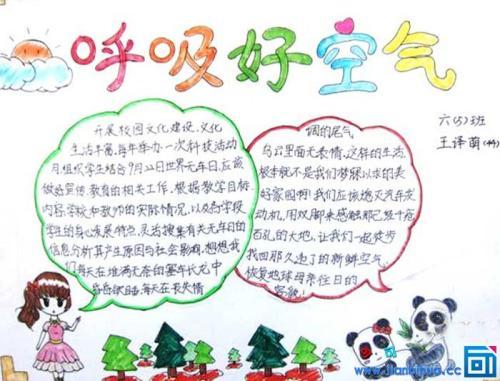 呼吸好空气
六(5)班
王译萌
开展校园文化建设,文化
生活丰富,每年举办一次科技活动
月,组织学生结合9月22日世界无车日,应该
做些宣传,教育的相关工作,根据教学目标
内容,学校和教师的实际情况,以及各学段
学生的身心发展特点,灵活搜集有关无车日的
信息分析其产生原因与社会影响,想想我
们每天在堆满无奈的塞车长龙中
昏昏欲睡每天在丧失情
烟的尾气
乌云里面无表情,这样的生活
根本就不是我们梦寐以求的美
好家园啊!我们应该熄灭汽车发
动机,用双脚来感触那已经千疮
百孔的大地,让我们一起徒步
找回那久违了的新鲜空气,
恢复地球母亲往日的
容貌!
www.jianbihua.cc